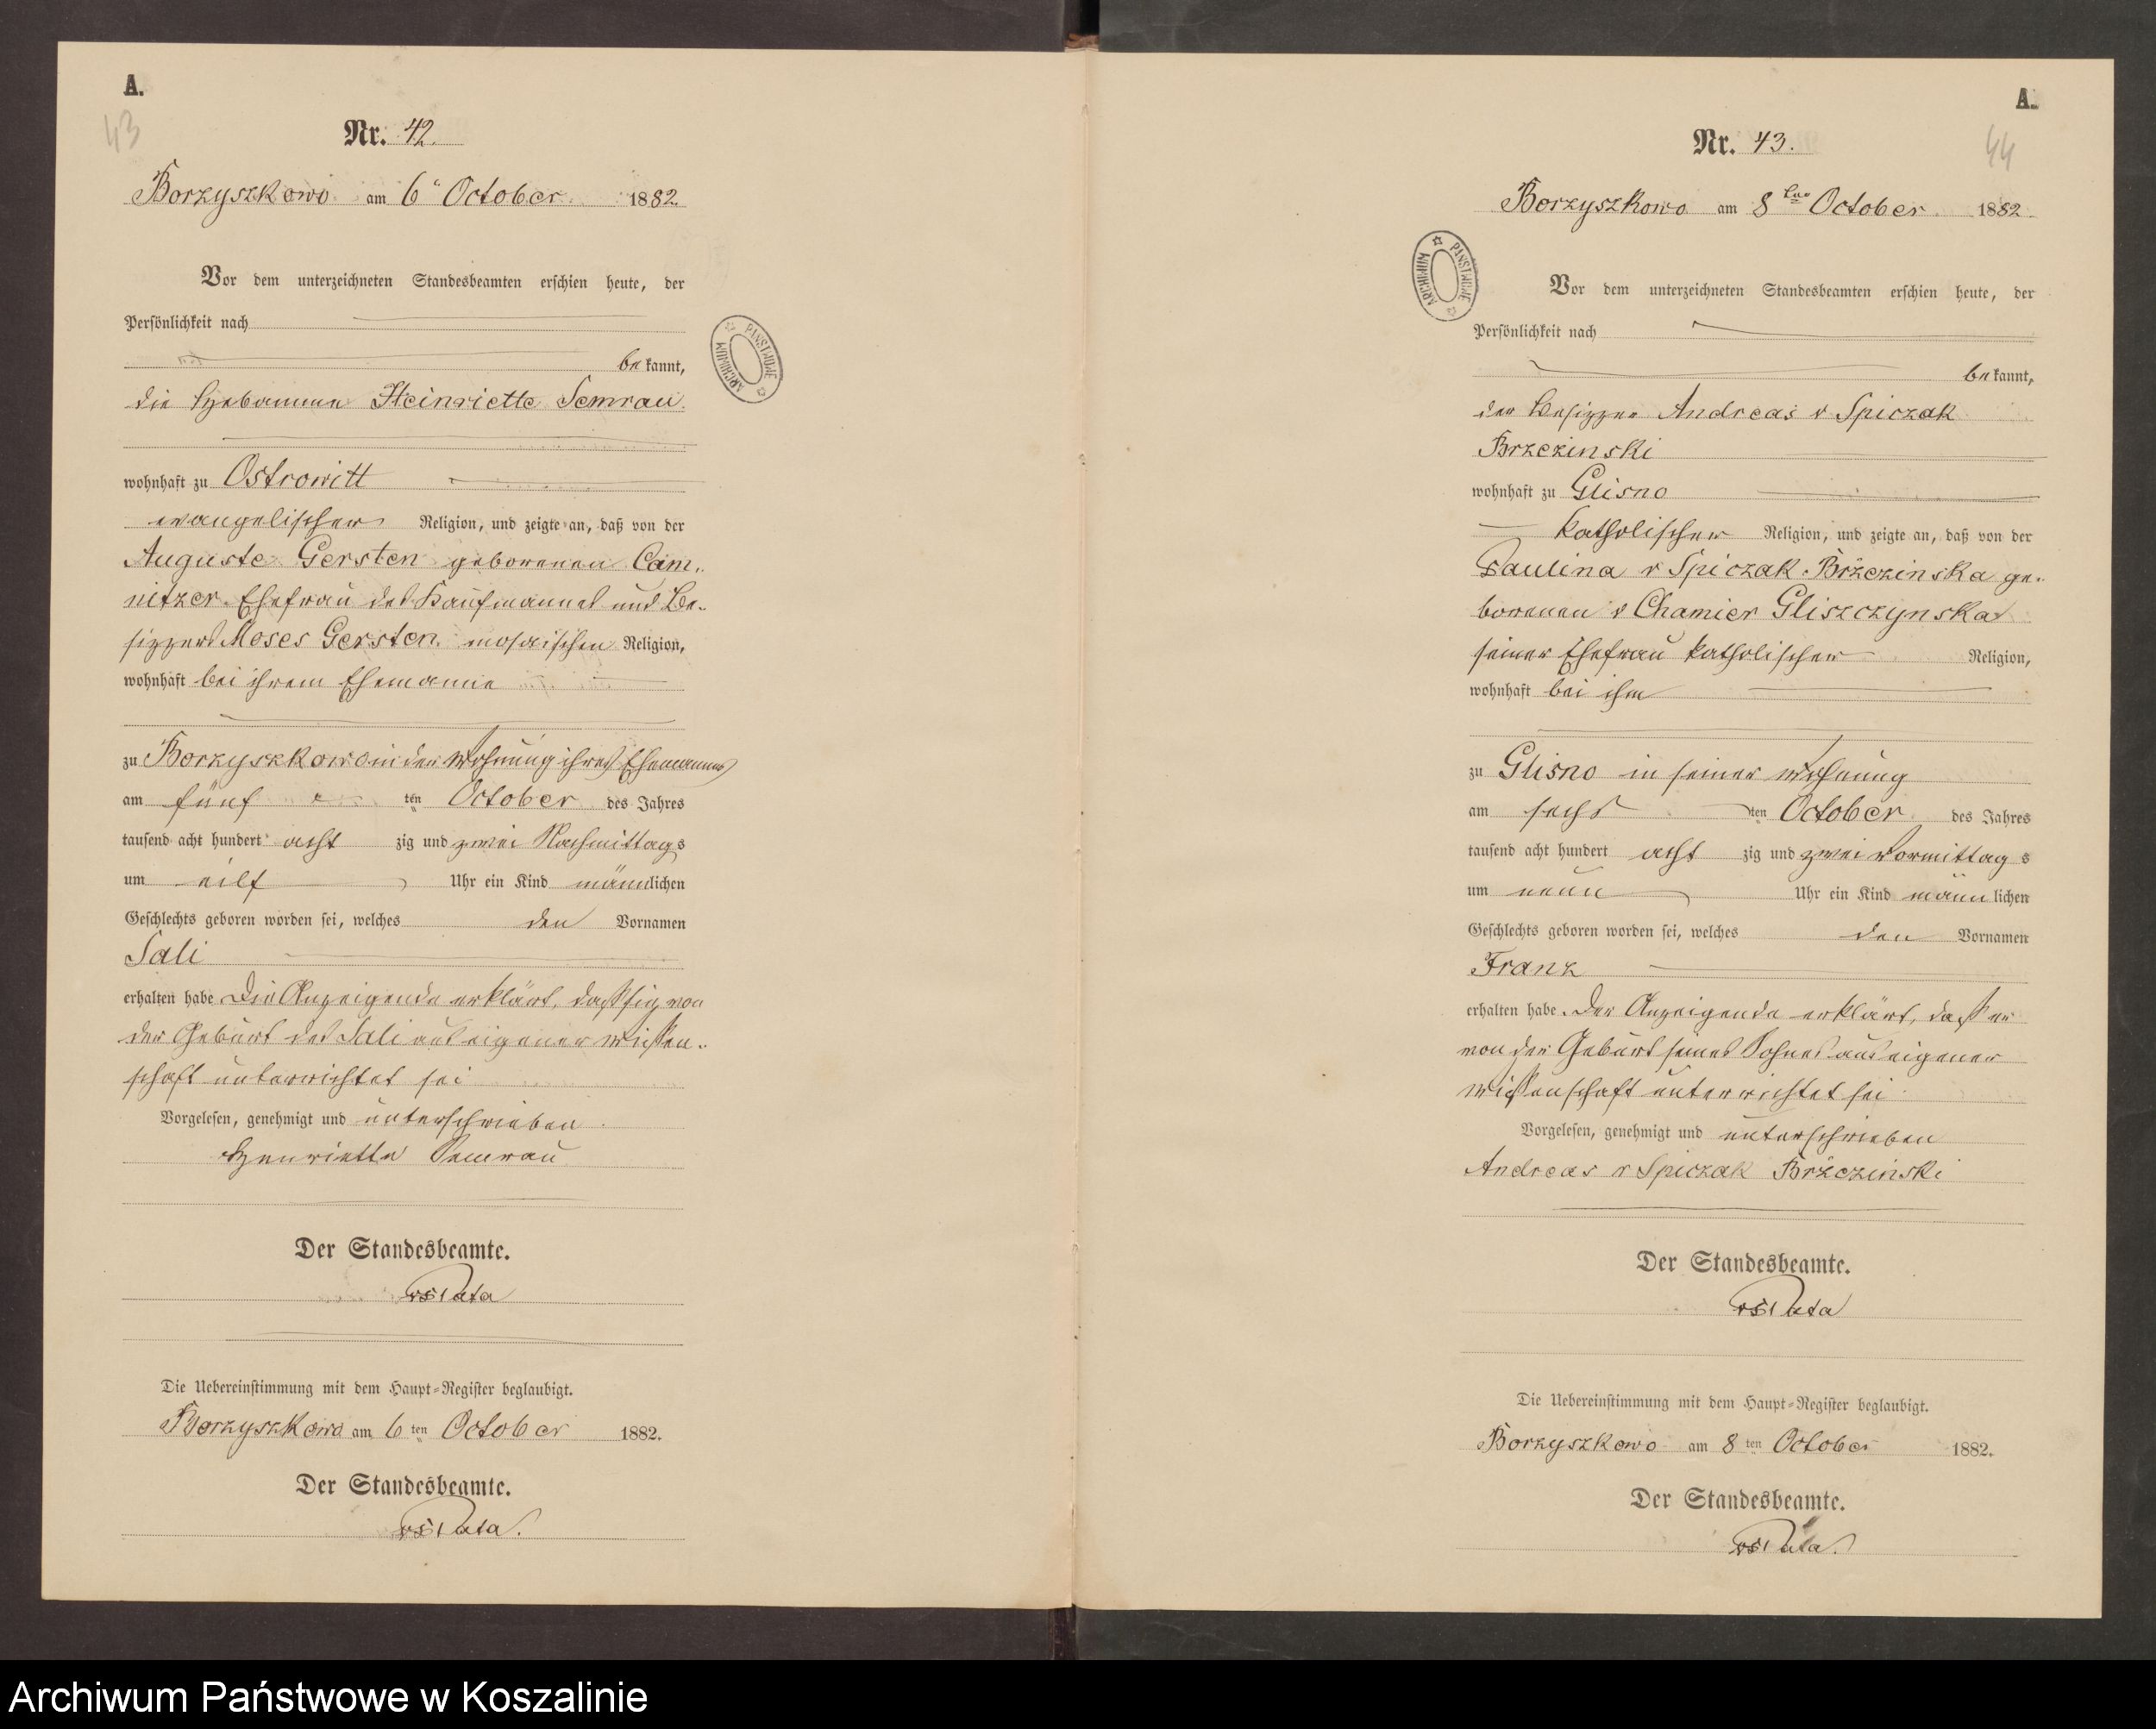 A.
43
Nr. 42.
Borzyszkowo am 6" October 1882.
Vor dem unterzeichneten Standesbeamten erschien heute, der
Persönlichkeit nach
bekannt,
die Hebamme Heinriette Semrau.
wohnhaft zu Ostrowitt
evangelischer Religion, und zeigte an, daß von der
Auguste Gersten geborenen Cam-
nitzer. Ehefrau des Kaufmannes und Be-
sizzers Moses Gersten. mosaischen Religion,
wohnhaft bei ihrem Ehemanne
zu Borzyszkowo in der Wohnung ihres Ehemannes
am fünf ten October des Jahres
tausend acht hundert acht zig und zwei Nachmittags
um eilf Uhr ein Kind männlichen
Geschlechts geboren worden sei, welches den Vornamen
Sali
erhalten habe Die Anzeigende erklärt, daß sie von
der Geburt des Sali aus eigener Wissen-
schaft unterrichtet sei
Vorgelesen, genehmigt und unterschrieben.
Henriette Semrau
Der Standesbeamte.
Die Uebereinstimmung mit dem Haupt-Register beglaubigt.
Borzyszkowo am 6 ten October 1882.
Der Standesbeamte.
A.
44
Nr. 43.
Borzyszkowo am 8 ten October 1882.
ARCHIWUM PAŃSTWOWE
Vor dem unterzeichneten Standesbeamten erschien heute, der
Persönlichkeit nach
bekannt,
der Besizzer Andreas v Spiczak
Brzezinski
wohnhaft zu Glisno
katholischer Religion, und zeigte an, daß von der
Paulina v Spiczak Brzezinska ge-
borenen v Chamier Gliszczynska
seiner Ehefrau katholischer Religion,
wohnhaft bei ihm
zu Glisno in seiner Wohnung
am sechs ten October des Jahres
tausend acht hundert acht zig und zwei Vormittags
um neun Uhr ein Kind männlichen
Geschlechts geboren worden sei, welches den Vornamen
Franz
erhalten habe. Der Anzeigende erklärt, daß er
von der Geburt seines Sohnes aus eigener
Wissenschaft unterrichtet sei
Vorgelesen, genehmigt und unterschrieben
Andreas v Spiczak Brzezinski
Der Standesbeamte.
Die Uebereinstimmung mit dem Haupt-Register beglaubigt.
Borzyszkowo am 8 ten October 1882.
Der Standesbeamte.
ARCHIWUM PAŃSTWOWE
Archiwum Państwowe w Koszalinie